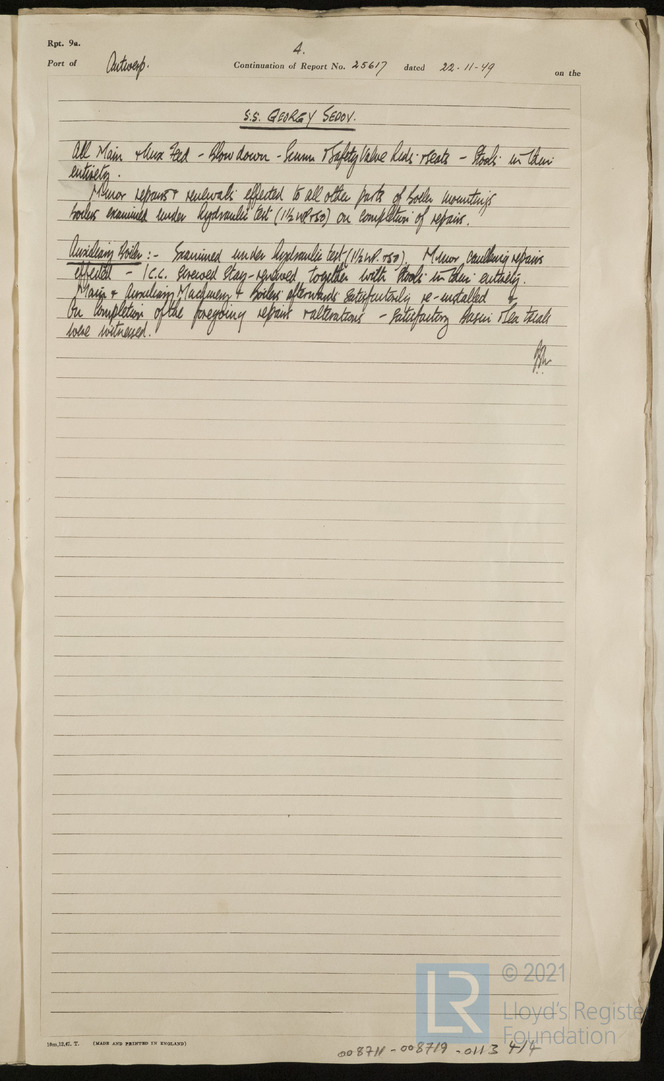 Rpt. 9a.
4.
Port of Antwerp. Continuation of Report No. 25617 dated 22-11-49 on the
S.S. GEORGY SEDOV.
All Main & Aux Feed - Blow down - Scum & Safety Valve Lids & Seats - Studs in Chem
entirety.
Minor repairs & renewals effected to all other parts of Boiler mountings
Boilers examined under hydraulic test (1½ WP. +50) on completion of repairs.
Auxiliary Boiler :- Examined under hydraulic test (1½ WP. +50). Minor caulking repairs
effected - 1 C.C. screwed stay - renewed together with studs in entirety.
Main & Auxiliary Machinery & Boilers afterwards satisfactorily re-installed &
On completion of the foregoing repairs & alterations - satisfactory Basin & Sea trials
were witnessed.
18m,12,47. T. (MADE AND PRINTED IN ENGLAND)
LR © 2021
Lloyd's Register
Foundation
008711-008719-0113 4/4